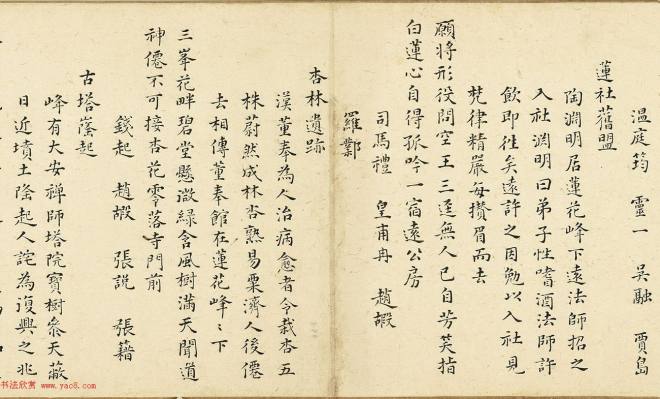 溫庭筠 靈一 吳融 賈島
蓮社舊盟
陶淵明居蓮花峰下遠法師招之
入社淵明曰弟子性嗜酒法師許
飲即往矣遠許之因勉以入社見
梵律精嚴每攢眉而去
願將形役問空王三逕無人已自芳笑指
白蓮心自得孤吟一宿遠公房
司馬禮 皇甫冉 趙嘏
羅鄴
杏林遺跡
漢董奉為人治病愈者令栽杏五
株蔚然成林杏熟易粟濟人後僊
去相傳董奉館在蓮花峰〻下
三峯花畔碧堂懸澂綠含風樹滿天聞道
神僊不可接杏花零落寺門前
錢起 趙嘏 張說 張籍
古塔蔭起
峰有大安禅師塔院寶樹參天蔽
日近墳土陰起人詫為復興之兆
书法欣赏 www.yac8.com